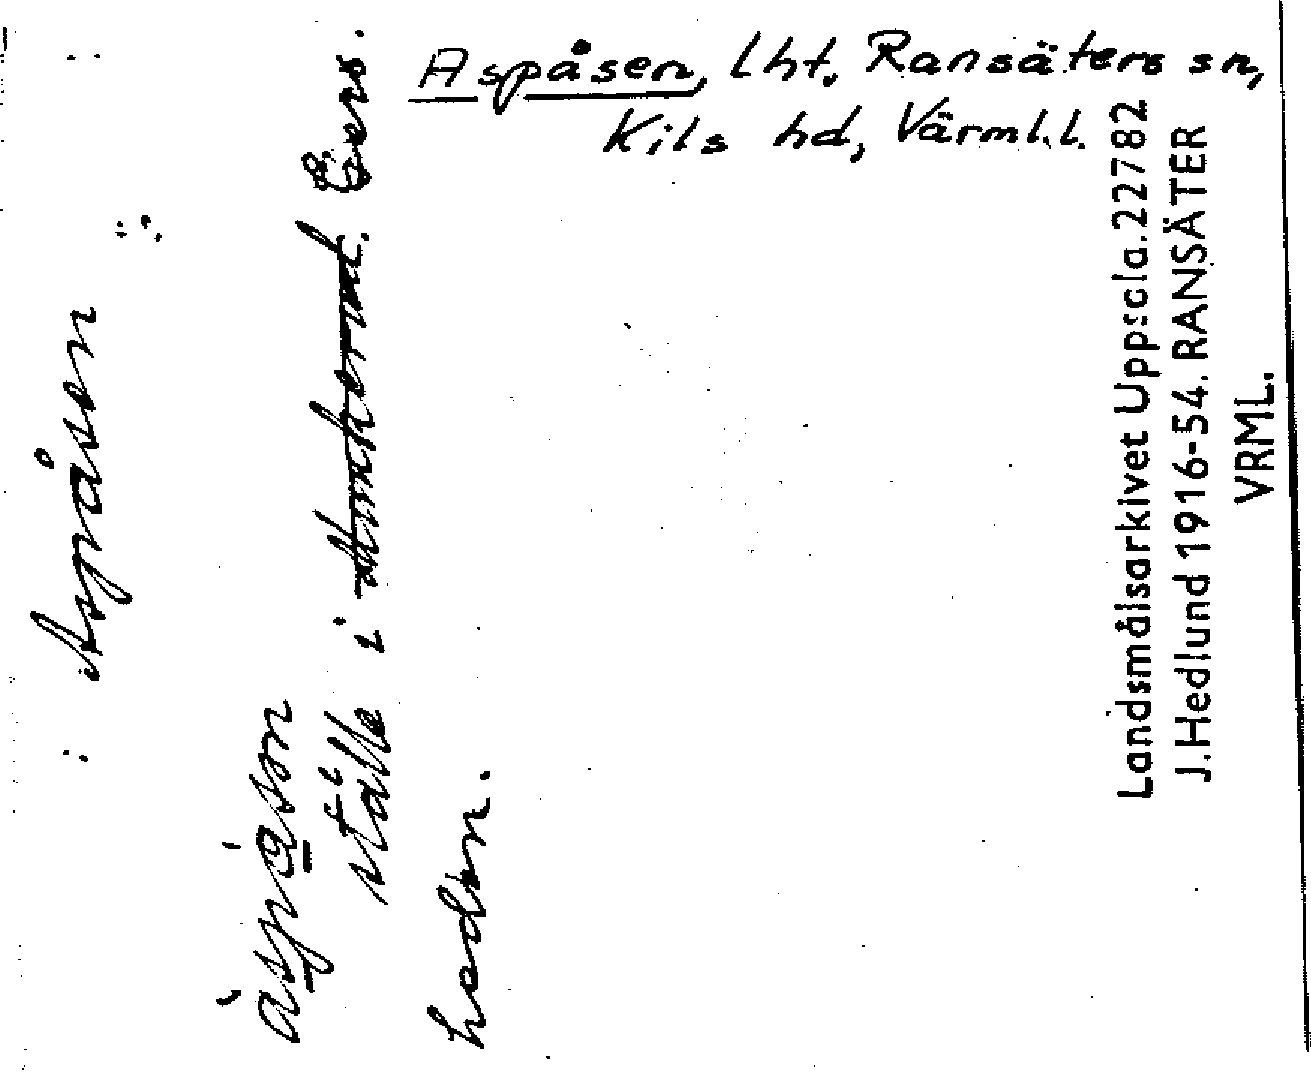 Aspåsen, lht, Ransäters sn,
Kils hd, Värml.l.
Aspåsen
àspå̀sən
ställe i
hedn.
Landsmålsarkivet Uppsala. 22782
J. Hedlund 1916-54. RANSÄTER
VRML.